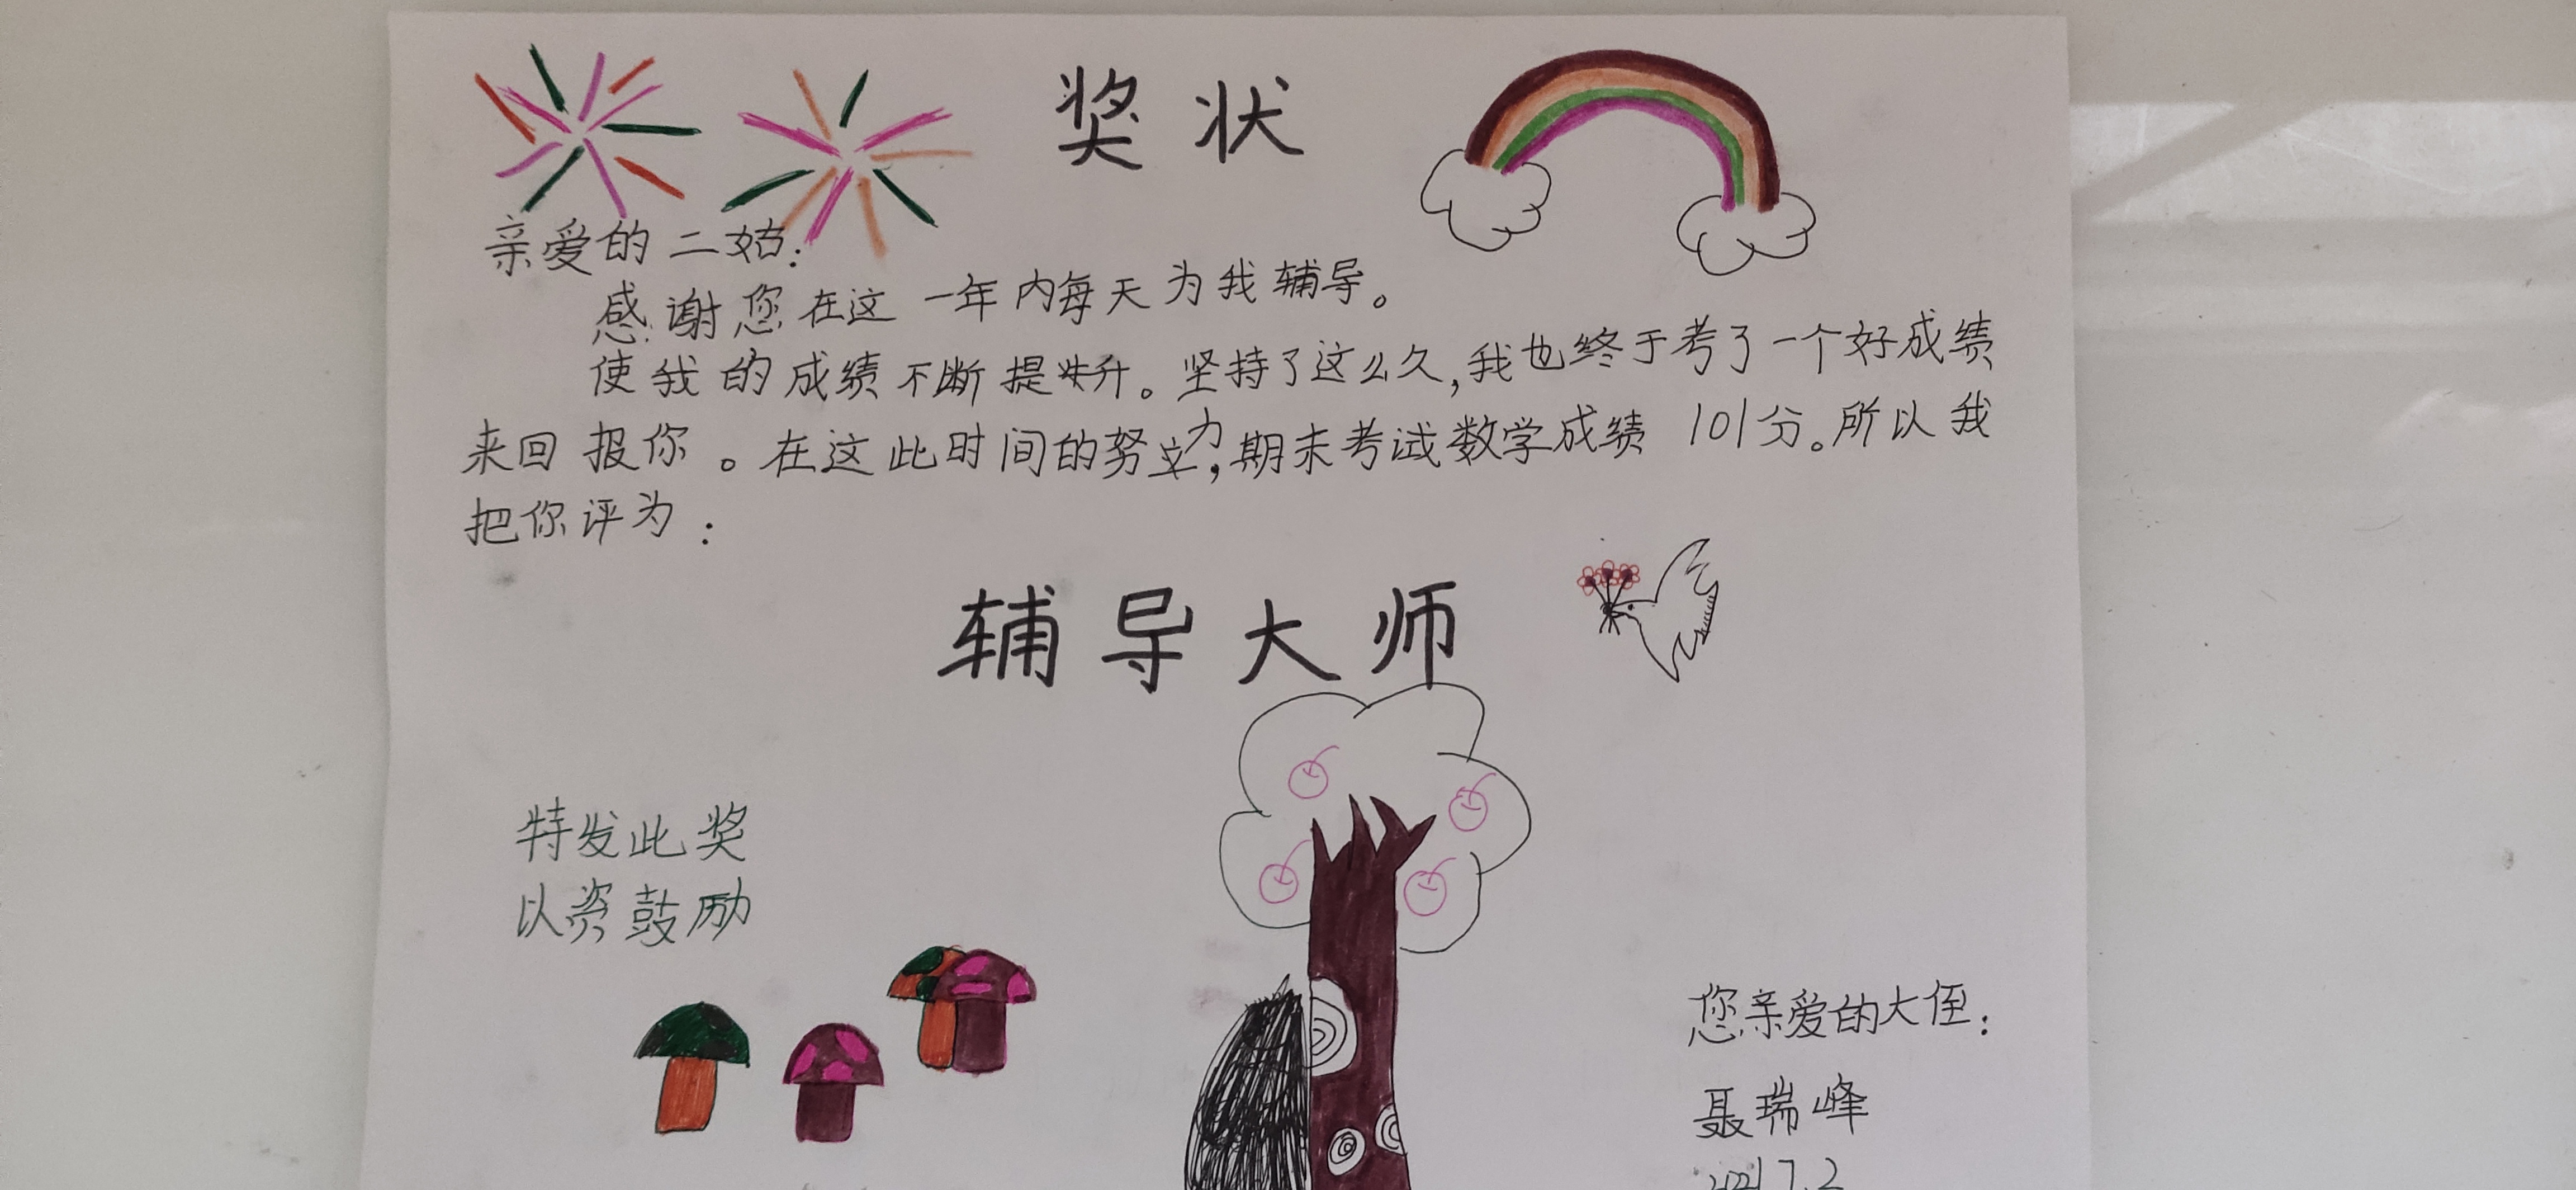 奖状
亲爱的二姑：
感谢您在这一年内每天为我辅导。
使我的成绩不断提升。坚持了这么久，我也终于考了一个好成绩
来回报你。在这此时间的努力，期末考试数学成绩 101分。所以我
把你评为：
辅导大师
特发此奖
以资鼓励
您亲爱的大侄：
聂瑞峰
2021 7.2